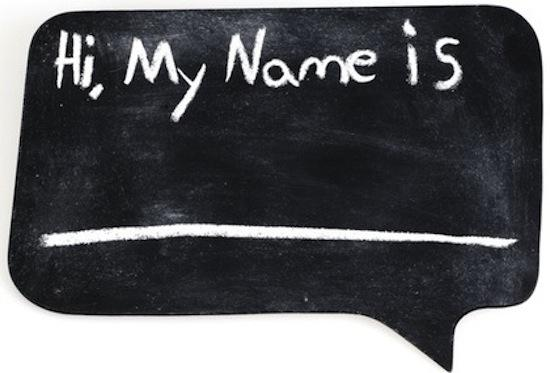 Hi, My Name is